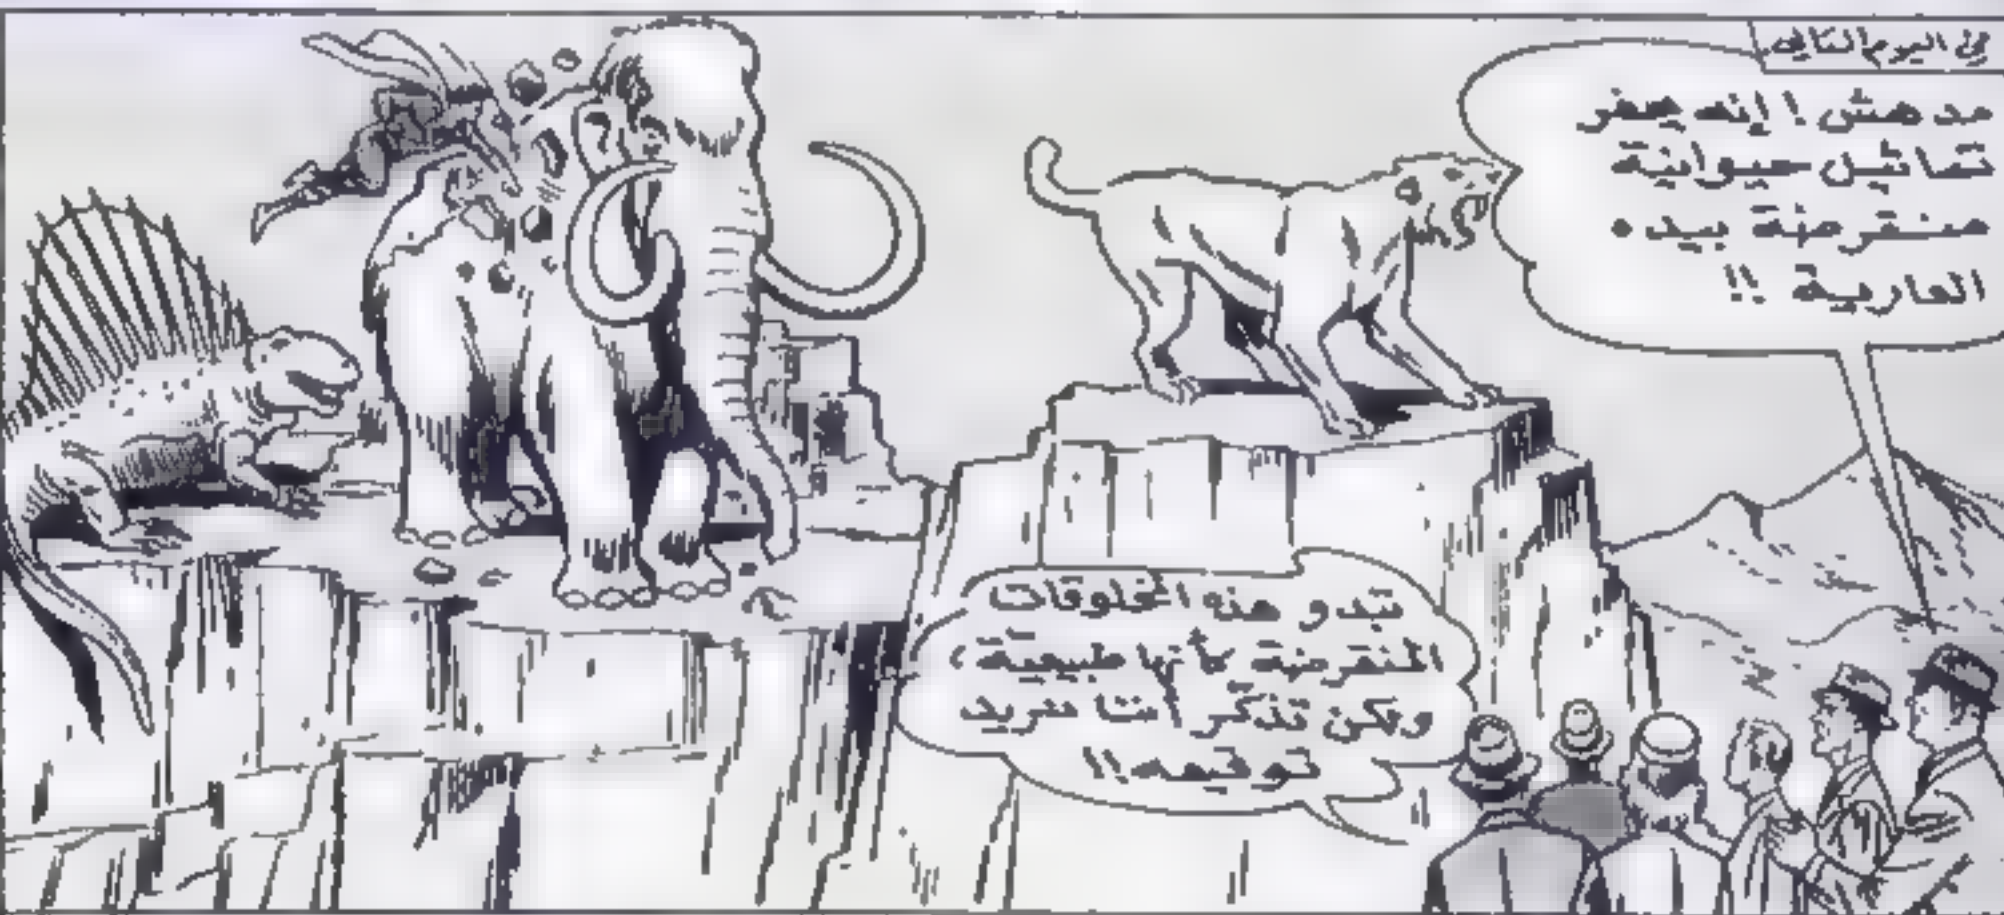 في اليوم التالي
مدهش ! إنه يحفر
تماثيل حيوانية
منقرضة بيده
العارية !!
تبدو هذه المخلوقات
المنقرضة كأنها طبيعية ،
ولكن تذكر أننا نريد
توقيعه !!